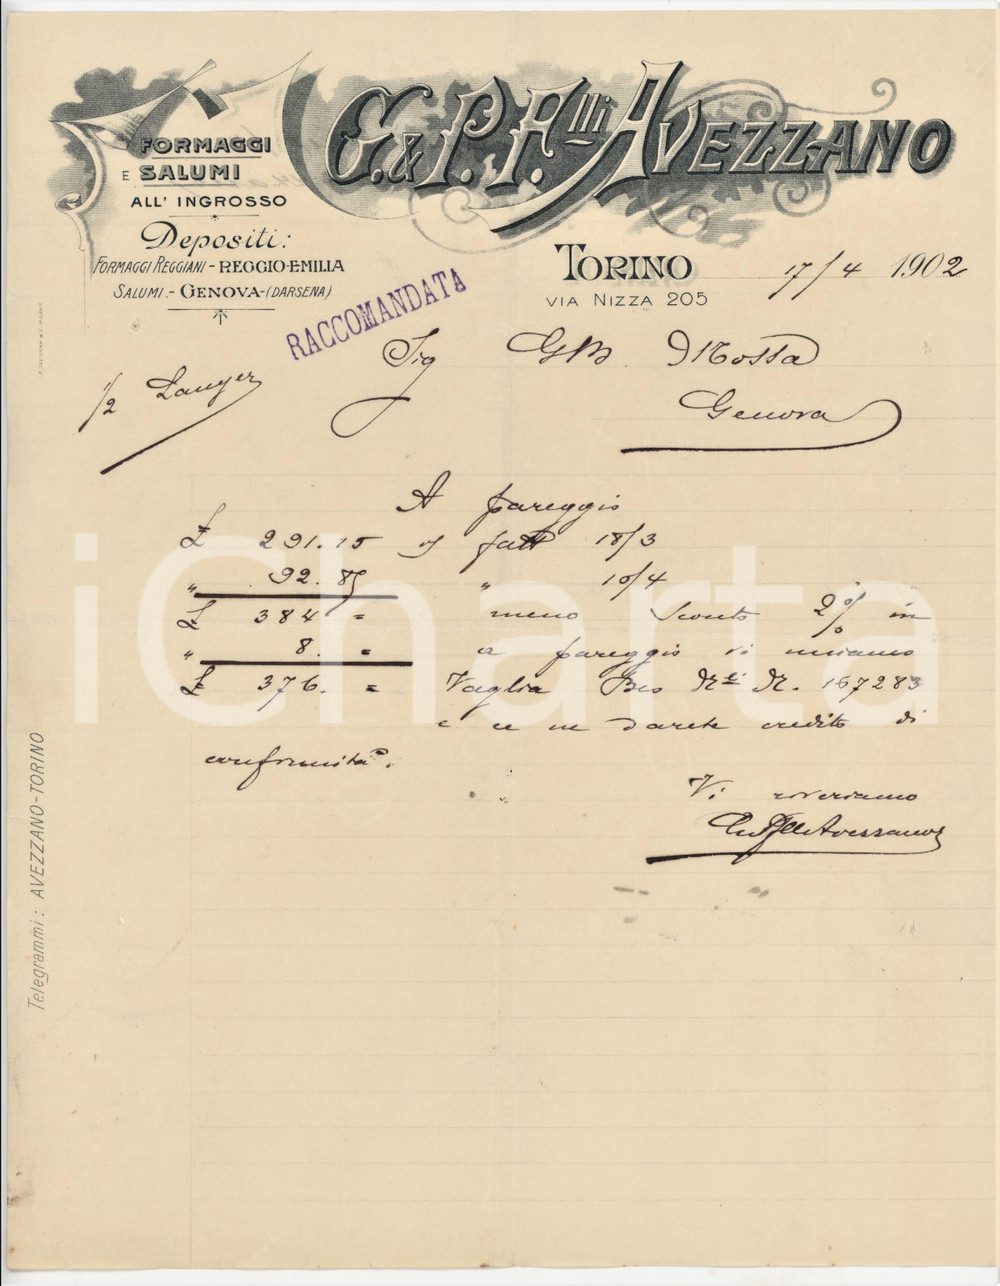 G. & P. F.lli AVEZZANO
FORMAGGI
E SALUMI
ALL' INGROSSO
Depositi:
FORMAGGI REGGIANI - REGGIO-EMILIA
SALUMI.- GENOVA-(DARSENA)
TORINO 17/4 1902
VIA NIZZA 205
RACCOMANDATA
Sig GB
Genova
1/2
A pareggio
£ 291.15 fatt 18/3
" 92.85 " 10/4
£ 384 = meno Sconto 2% in
" 8. = a pareggio vi inviamo
£ 376. = Vaglia N. 167283
e ce ne darete credito di
conformità.
Vi riveriamo
F.lli Avezzano
Telegrammi: AVEZZANO-TORINO
iCharta